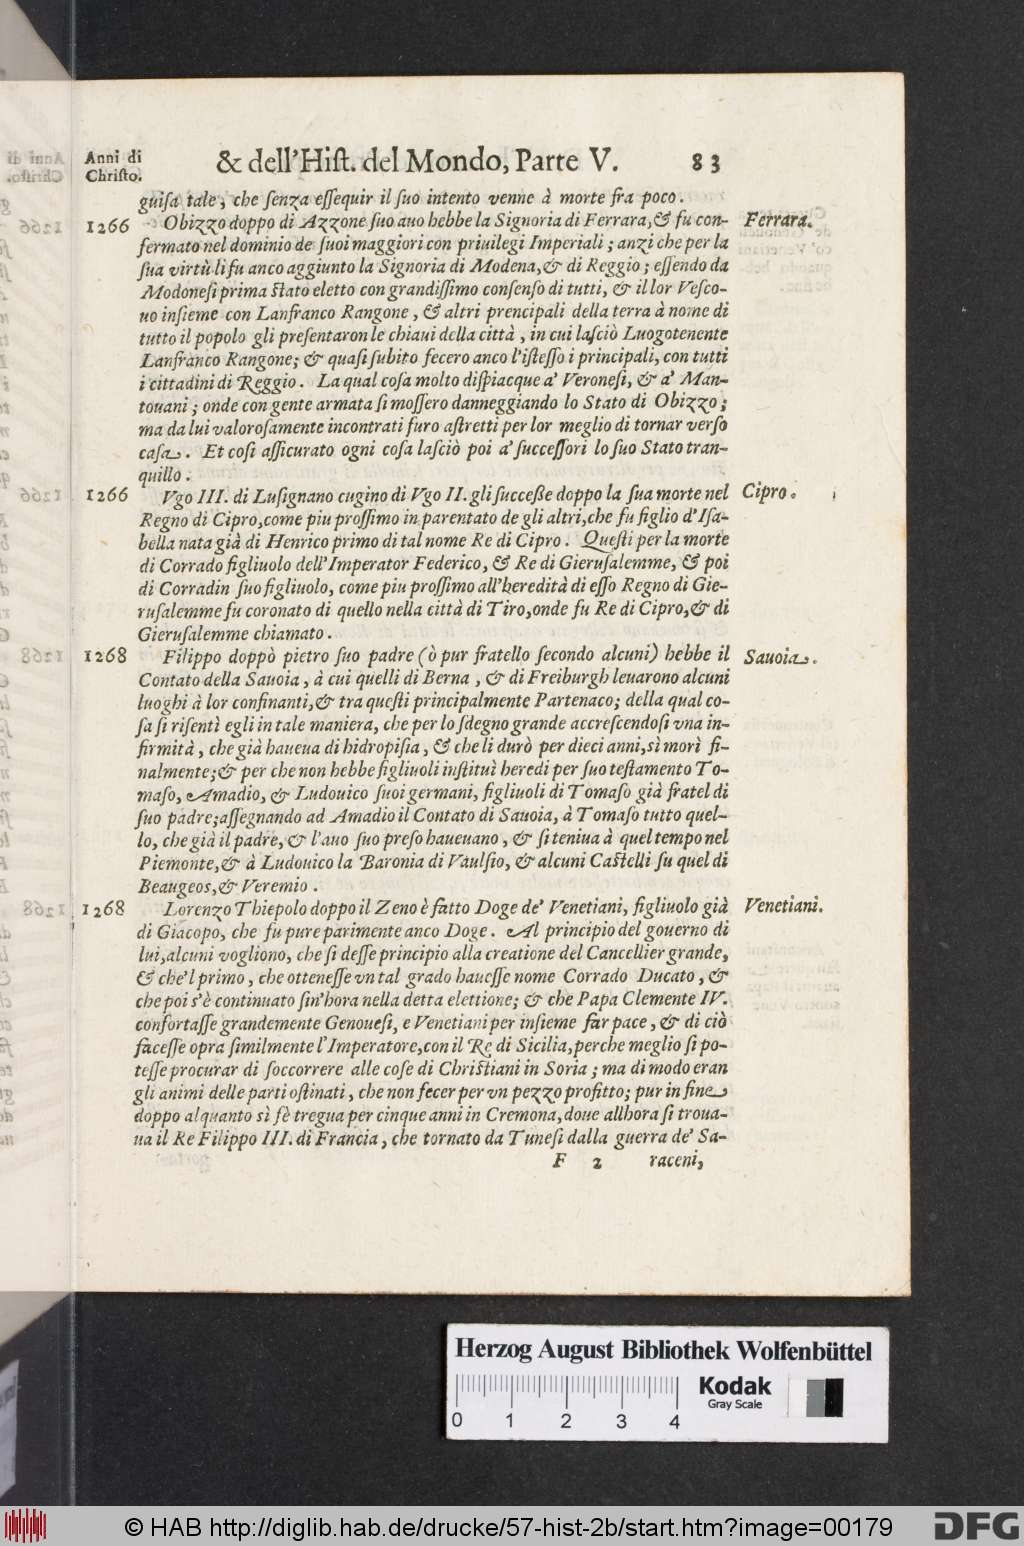 Anni di Christo.
& dell'Hiſt. del Mondo, Parte V. 83
guiſa tale, che ſenza eſſequir il ſuo intento venne à morte fra poco.
1266 Obizzo doppo di Azzone ſuo auo hebbe la Signoria di Ferrara, & fu con- Ferrara.
fermato nel dominio de ſuoi maggiori con priuilegi Imperiali; anzi che per la
ſua virtù li fu anco aggiunto la Signoria di Modena, & di Reggio; eſſendo da
Modoneſi prima ſtato eletto con grandiſſimo conſenſo di tutti, & il lor Veſco-
uo inſieme con Lanfranco Rangone, & altri prencipali della terra à nome di
tutto il popolo gli preſentaron le chiaui della città, in cui laſciò Luogotenente
Lanfranco Rangone; & quaſi ſubito fecero anco l'iſteſſo i principali, con tutti
i cittadini di Reggio. La qual coſa molto diſpiacque a' Veroneſi, & a' Man-
touani; onde con gente armata ſi moſſero danneggiando lo Stato di Obizzo;
ma da lui valoroſamente incontrati furo aſtretti per lor meglio di tornar verſo
caſa. Et coſi aſſicurato ogni coſa laſciò poi a' ſucceſſori lo ſuo Stato tran-
quillo.
1266 Vgo III. di Luſignano cugino di Vgo II. gli ſucceße doppo la ſua morte nel Cipro.
Regno di Cipro, come piu proſſimo in parentato de gli altri, che fu figlio d'Iſa-
bella nata già di Henrico primo di tal nome Re di Cipro. Queſti per la morte
di Corrado figliuolo dell'Imperator Federico, & Re di Gieruſalemme, & poi
di Corradin ſuo figliuolo, come piu proſſimo all'heredità di eſſo Regno di Gie-
ruſalemme fu coronato di quello nella città di Tiro, onde fu Re di Cipro, & di
Gieruſalemme chiamato.
1268 Filippo doppò pietro ſuo padre (ò pur fratello ſecondo alcuni) hebbe il Sauoia.
Contato della Sauoia, à cui quelli di Berna, & di Freiburgh leuarono alcuni
luoghi à lor confinanti, & tra queſti principalmente Partenaco; della qual co-
ſa ſi riſentì egli in tale maniera, che per lo ſdegno grande accreſcendoſi vna in-
firmità, che già haueua di hidropiſia, & che li durò per dieci anni, sì morì fi-
nalmente; & per che non hebbe figliuoli inſtituì heredi per ſuo teſtamento To-
maſo, Amadio, & Ludouico ſuoi germani, figliuoli di Tomaſo già fratel di
ſuo padre; aſſegnando ad Amadio il Contato di Sauoia, à Tomaſo tutto quel-
lo, che già il padre, & l'auo ſuo preſo haueuano, & ſi teniua à quel tempo nel
Piemonte, & à Ludouico la Baronia di Vaulſio, & alcuni Caſtelli ſu quel di
Beaugeos, & Veremio.
1268 Lorenzo Thiepolo doppo il Zeno è fatto Doge de' Venetiani, figliuolo già Venetiani.
di Giacopo, che fu pure parimente anco Doge. Al principio del gouerno di
lui, alcuni vogliono, che ſi deſſe principio alla creatione del Cancellier grande,
& che'l primo, che otteneſſe vn tal grado haueſſe nome Corrado Ducato, &
che poi s'è continuato ſin'hora nella detta elettione; & che Papa Clemente IV.
confortaſſe grandemente Genoueſi, e Venetiani per inſieme far pace, & di ciò
faceſſe opra ſimilmente l'Imperatore, con il Re di Sicilia, perche meglio ſi po-
teſſe procurar di ſoccorrere alle coſe di Chriſtiani in Soria; ma di modo eran
gli animi delle parti oſtinati, che non fecer per vn pezzo profitto; pur in fine
doppo alquanto sì fè tregua per cinque anni in Cremona, doue allhora ſi troua-
ua il Re Filippo III. di Francia, che tornato da Tuneſi dalla guerra de' Sa-
F 2 raceni,
Herzog August Bibliothek Wolfenbüttel
0 1 2 3 4
Kodak
Gray Scale
© HAB http://diglib.hab.de/drucke/57-hist-2b/start.htm?image=00179 DFG